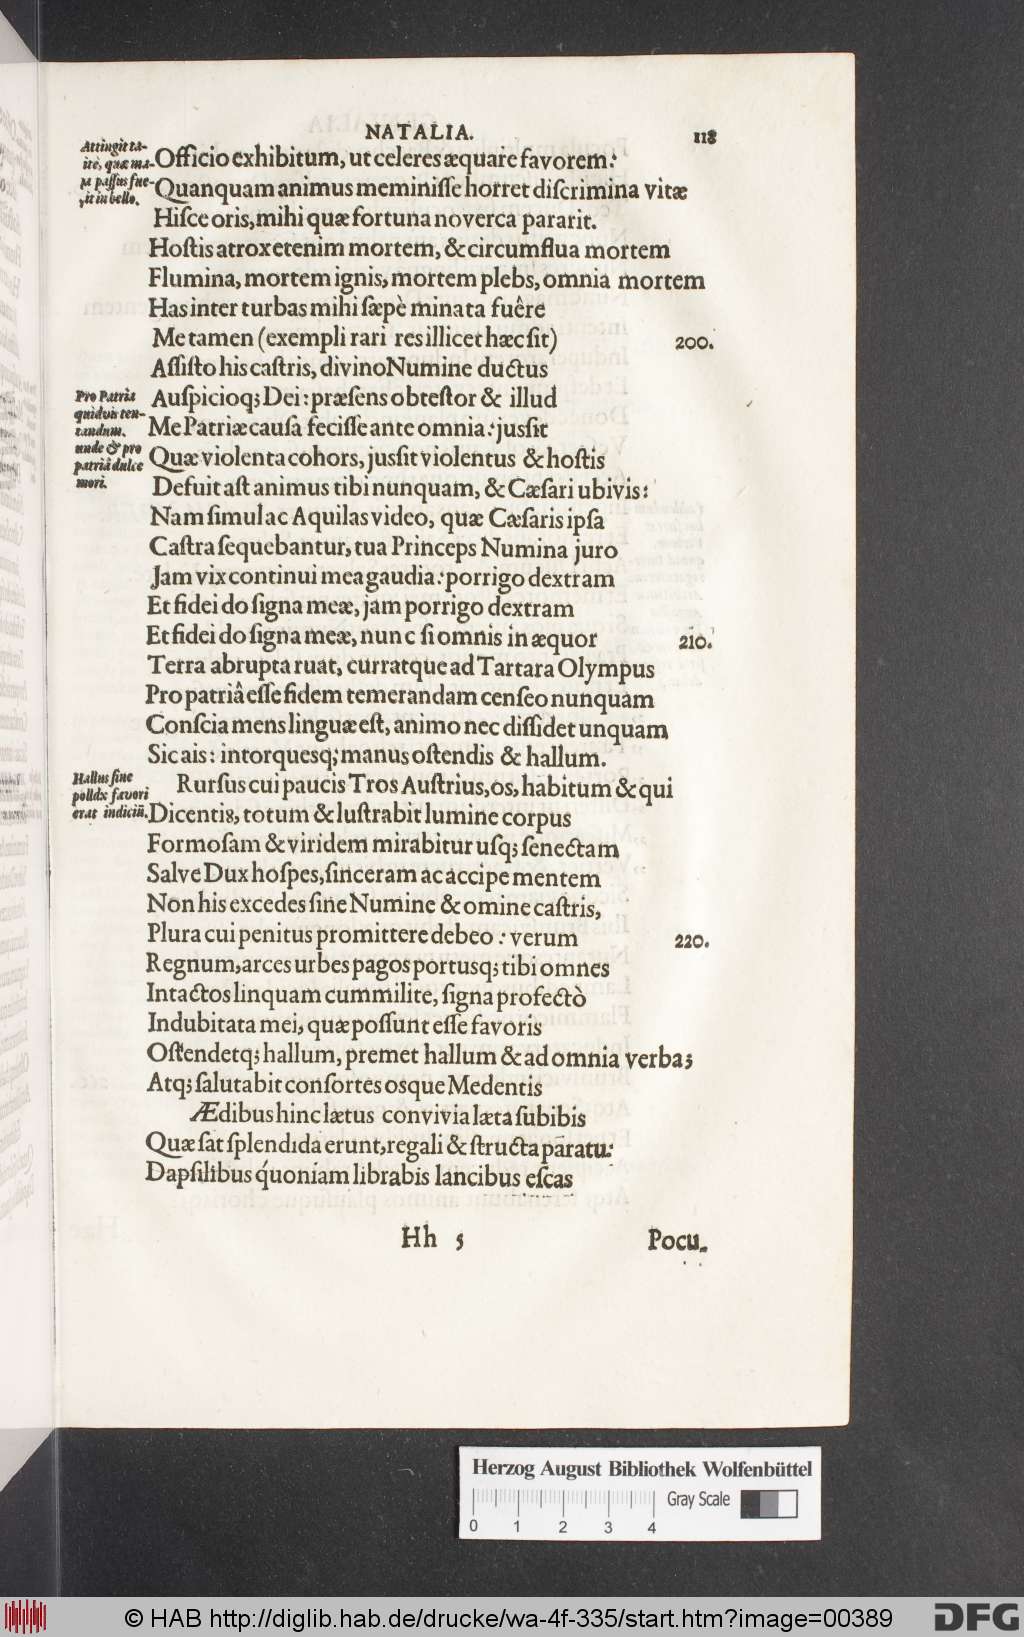 NATALIA. 118
Attingit ta-
itè, quæ ma-
la passus fue-
rit in bello.
Officio exhibitum, ut celeres æquare favorem:
Quanquam animus meminiſſe horret diſcrimina vitæ
Hiſce oris, mihi quæ fortuna noverca pararit.
Hoſtis atrox etenim mortem, & circumflua mortem
Flumina, mortem ignis, mortem plebs, omnia mortem
Has inter turbas mihi ſæpè minata fuêre
Me tamen (exempli rari res illicet hæc ſit) 200.
Aſſiſto his caſtris, divino Numine ductus
Pro Patria
quiduis ten-
tandum.
unde & pro
patriâ dulce
mori.
Auſpicioq; Dei: præſens obteſtor & illud
Me Patriæ cauſa feciſſe ante omnia: juſſit
Quæ violenta cohors, juſſit violentus & hoſtis
Defuit aſt animus tibi nunquam, & Cæſari ubivis:
Nam ſimul ac Aquilas video, quæ Cæſaris ipſa
Caſtra ſequebantur, tua Princeps Numina juro
Jam vix continui mea gaudia: porrigo dextram
Et fidei do ſigna meæ, jam porrigo dextram
Et fidei do ſigna meæ, nunc ſi omnis in æquor 210.
Terra abrupta ruat, curratque ad Tartara Olympus
Pro patriâ eſſe fidem temerandam cenſeo nunquam
Conſcia mens linguæ eſt, animo nec diſſidet unquam
Sic ais: intorquesq; manus oſtendis & hallum.
Hallus ſine
pollex favori
erat indiciũ.
Rurſus cui paucis Tros Auſtrius, os, habitum & qui
Dicentis, totum & luſtrabit lumine corpus
Formoſam & viridem mirabitur uſq; ſenectam
Salve Dux hoſpes, ſinceram ac accipe mentem
Non his excedes ſine Numine & omine caſtris,
Plura cui penitus promittere debeo: verum 220.
Regnum, arces urbes pagos portusq; tibi omnes
Intactos linquam cum milite, ſigna profectò
Indubitata mei, quæ poſſunt eſſe favoris
Oſtendetq; hallum, premet hallum & ad omnia verba;
Atq; ſalutabit conſortes osque Medentis
Ædibus hinc lætus convivia læta ſubibis
Quæ ſat ſplendida erunt, regali & ſtructa paratu:
Dapſilibus quoniam librabis lancibus eſcas
Hh 5 Pocu-
Herzog August Bibliothek Wolfenbüttel
Gray Scale
0 1 2 3 4
© HAB http://diglib.hab.de/drucke/wa-4f-335/start.htm?image=00389
DFG